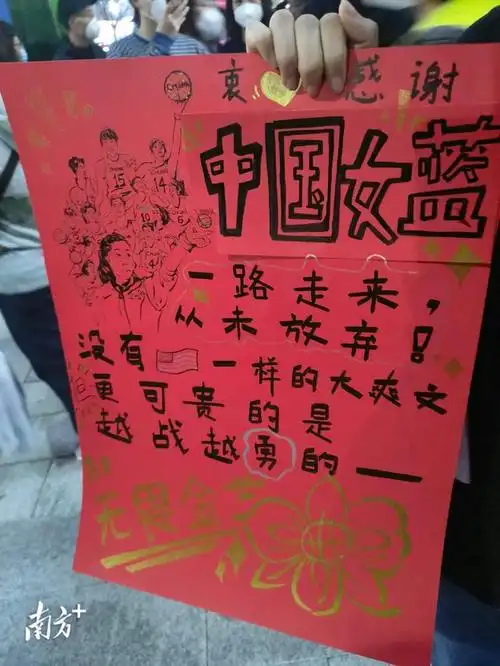 衷心感谢
中国女篮
一路走来，
从未放弃！
没有🇺🇸一样的大爽文
更可贵的是
越战越勇的——
无畏金兰
CHINA
15
14
10
6
南方+